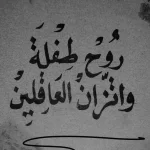 رُوحْ طِفْلَة
واتزانْ العَاقِلينْ